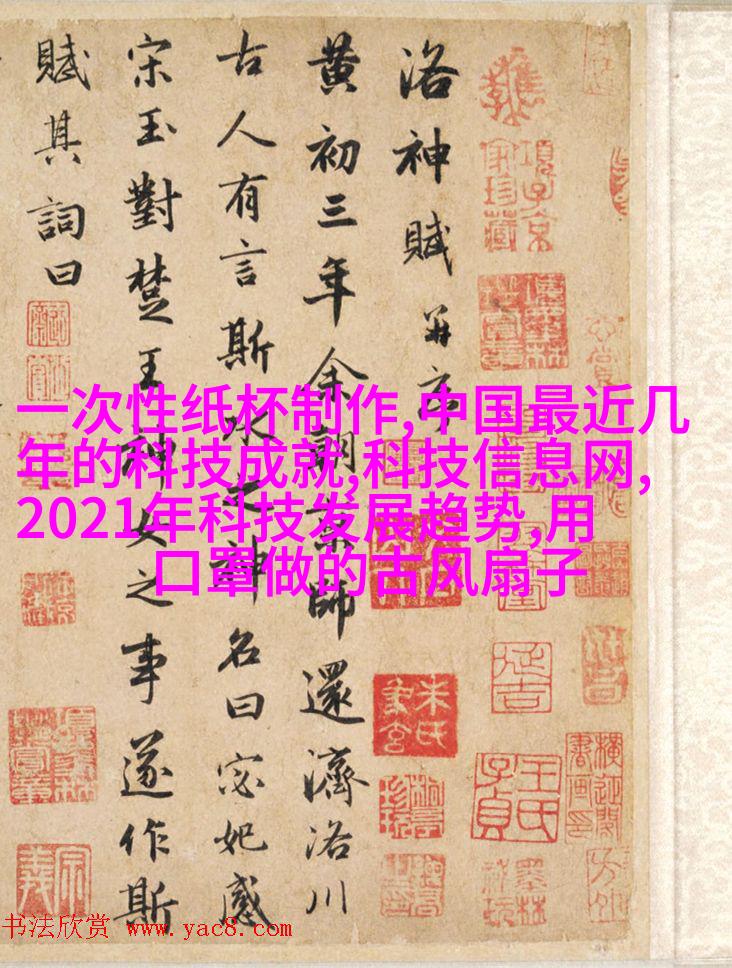 洛神賦并序
黄初三年余朝京師還濟洛川
古人有言斯水之神名曰宓妃感
宋玉對楚王神女之事遂作斯
賦其詞曰
項子京
家珍藏
一次性纸杯制作,中国最近几
年的科技成就,科技信息网,
2021年科技发展趋势,用
口罩做的古风扇子
书法欣赏 www.yac8.com